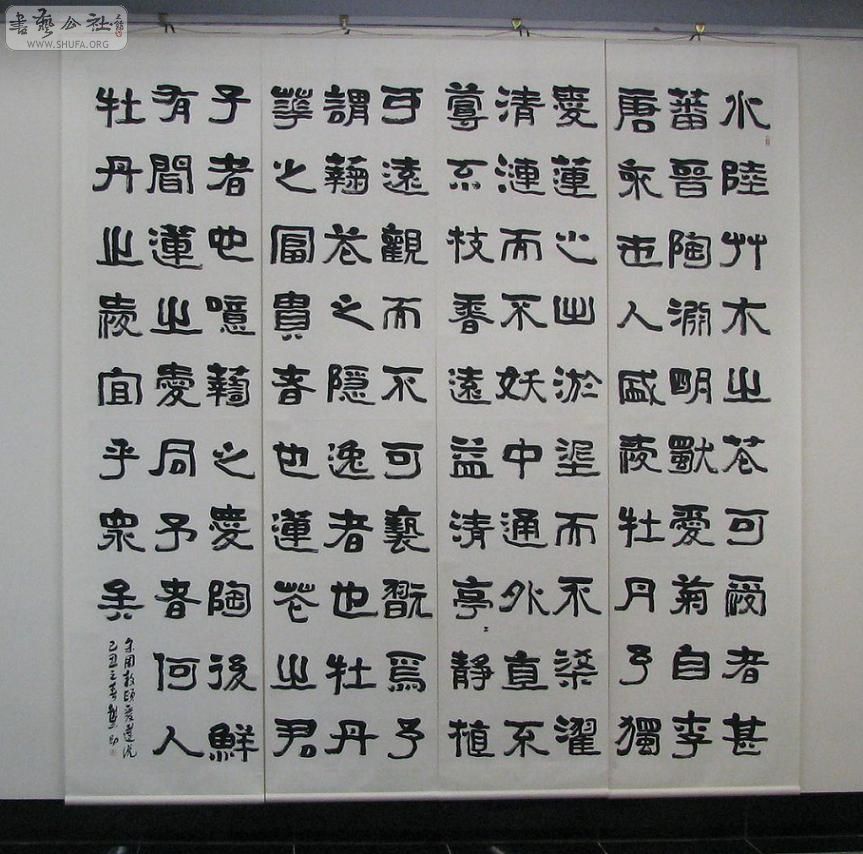 書藝公社
WWW.SHUFA.ORG
水陸艸木之花可愛者甚
蕃晉陶淵明獨愛菊自李
唐來世人盛愛牡丹予獨
愛蓮之出淤泥而不染濯
清漣而不妖中通外直不
蔓不枝香遠益清亭〻靜植
可遠觀而不可褻翫焉予
謂菊花之隱逸者也牡丹
華之富貴者也蓮花之君
子者也噫菊之愛陶後鮮
有聞蓮之愛同予者何人
牡丹之愛宜乎眾矣
宋周敦頤愛蓮說
己丑之春